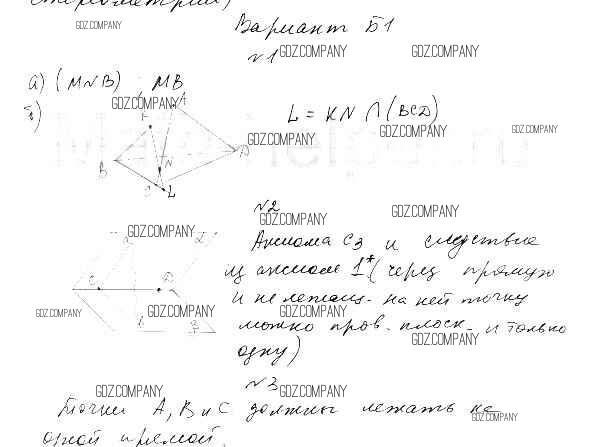 стереометрии)
Вариант Б1
GDZ.COMPANY
№1 GDZ.COMPANY GDZ.COMPANY
а) (MNB) MB
GDZ.COMPANY
б) K A L = KN ∩ (BCD)
GDZ.COMPANY GDZ.COMPANY GDZ.COMPANY
B N D
C L
№2
GDZ.COMPANY GDZ.COMPANY
GDZ.COMPANY Аксиома С3 и следствие
из аксиом 1* (через прямую
C D
и не лежащ. на ней точку
GDZ.COMPANY GDZ.COMPANY GDZ.COMPANY
можно пров. плоск. и только
GDZ.COMPANY
одну)
№3
GDZ.COMPANY GDZ.COMPANY
Точки A, B и C должны лежать не
GDZ.COMPANY
одной прямой.